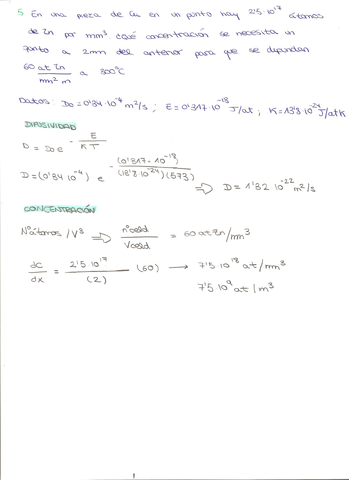 5. En una pieza de Cu en un punto hay 2'5·10¹⁷ átomos
de Zn por mm³. ¿Qué concentración se necesita en un
punto a 2mm del anterior para que se difundan
60 at Zn / mm² m a 300°C
Datos: D₀ = 0'34·10⁻⁴ m²/s ; E = 0'317·10⁻¹⁸ J/at ; K = 13'8·10⁻²⁴ J/atK
DIFUSIVIDAD
D = D₀ e^- E / K T
D = (0'34·10⁻⁴) e^- (0'317·10⁻¹⁸) / (13'8·10⁻²⁴)(573) ⇒ D = 1'32·10⁻²² m²/s
CONCENTRACIÓN
Nºátomos / V³ ⇒ = 60 at Zn/mm³
dC / dx = 2'5·10¹⁷ / (2) (60) → 7'5·10¹⁸ at/mm³
7'5·10⁹ at/m³